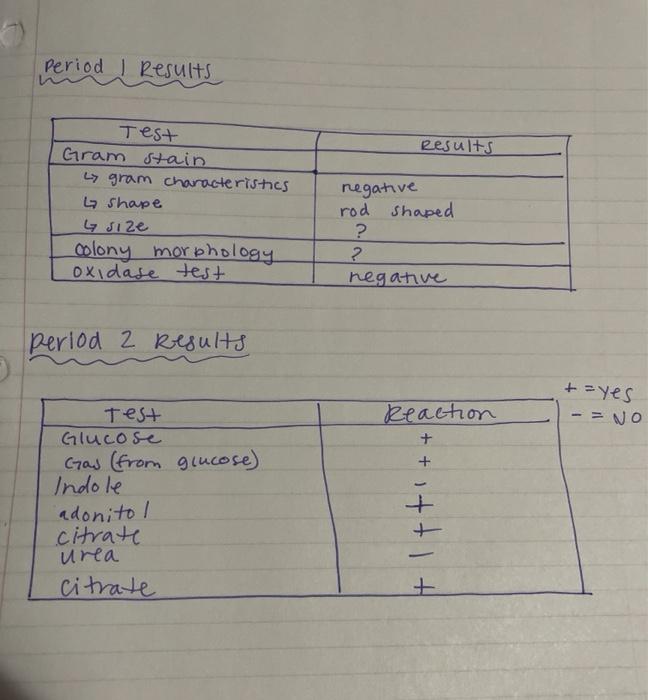 Period 1 Results
Test Results
Gram stain
↳ gram characteristics negative
↳ shape rod shaped
↳ size ?
colony morphology ?
oxidase test negative
Period 2 Results
+ = yes
- = NO
Test Reaction
Glucose +
Gas (from glucose) +
Indole -
adonitol +
citrate +
urea -
citrate +